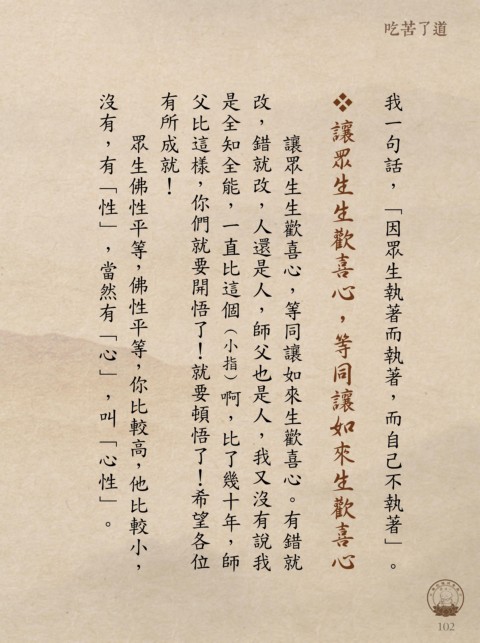 吃苦了道
我一句話，「因眾生執著而執著，而自己不執著」。
❖ 讓眾生生歡喜心，等同讓如來生歡喜心
讓眾生生歡喜心，等同讓如來生歡喜心。有錯就
改，錯就改，人還是人，師父也是人，我又沒有說我
是全知全能，一直比這個（小指）啊，比了幾十年，師
父比這樣，你們就要開悟了！就要頓悟了！希望各位
有所成就！
眾生佛性平等，佛性平等，你比較高，他比較小，
沒有，有「性」，當然有「心」，叫「心性」。
102